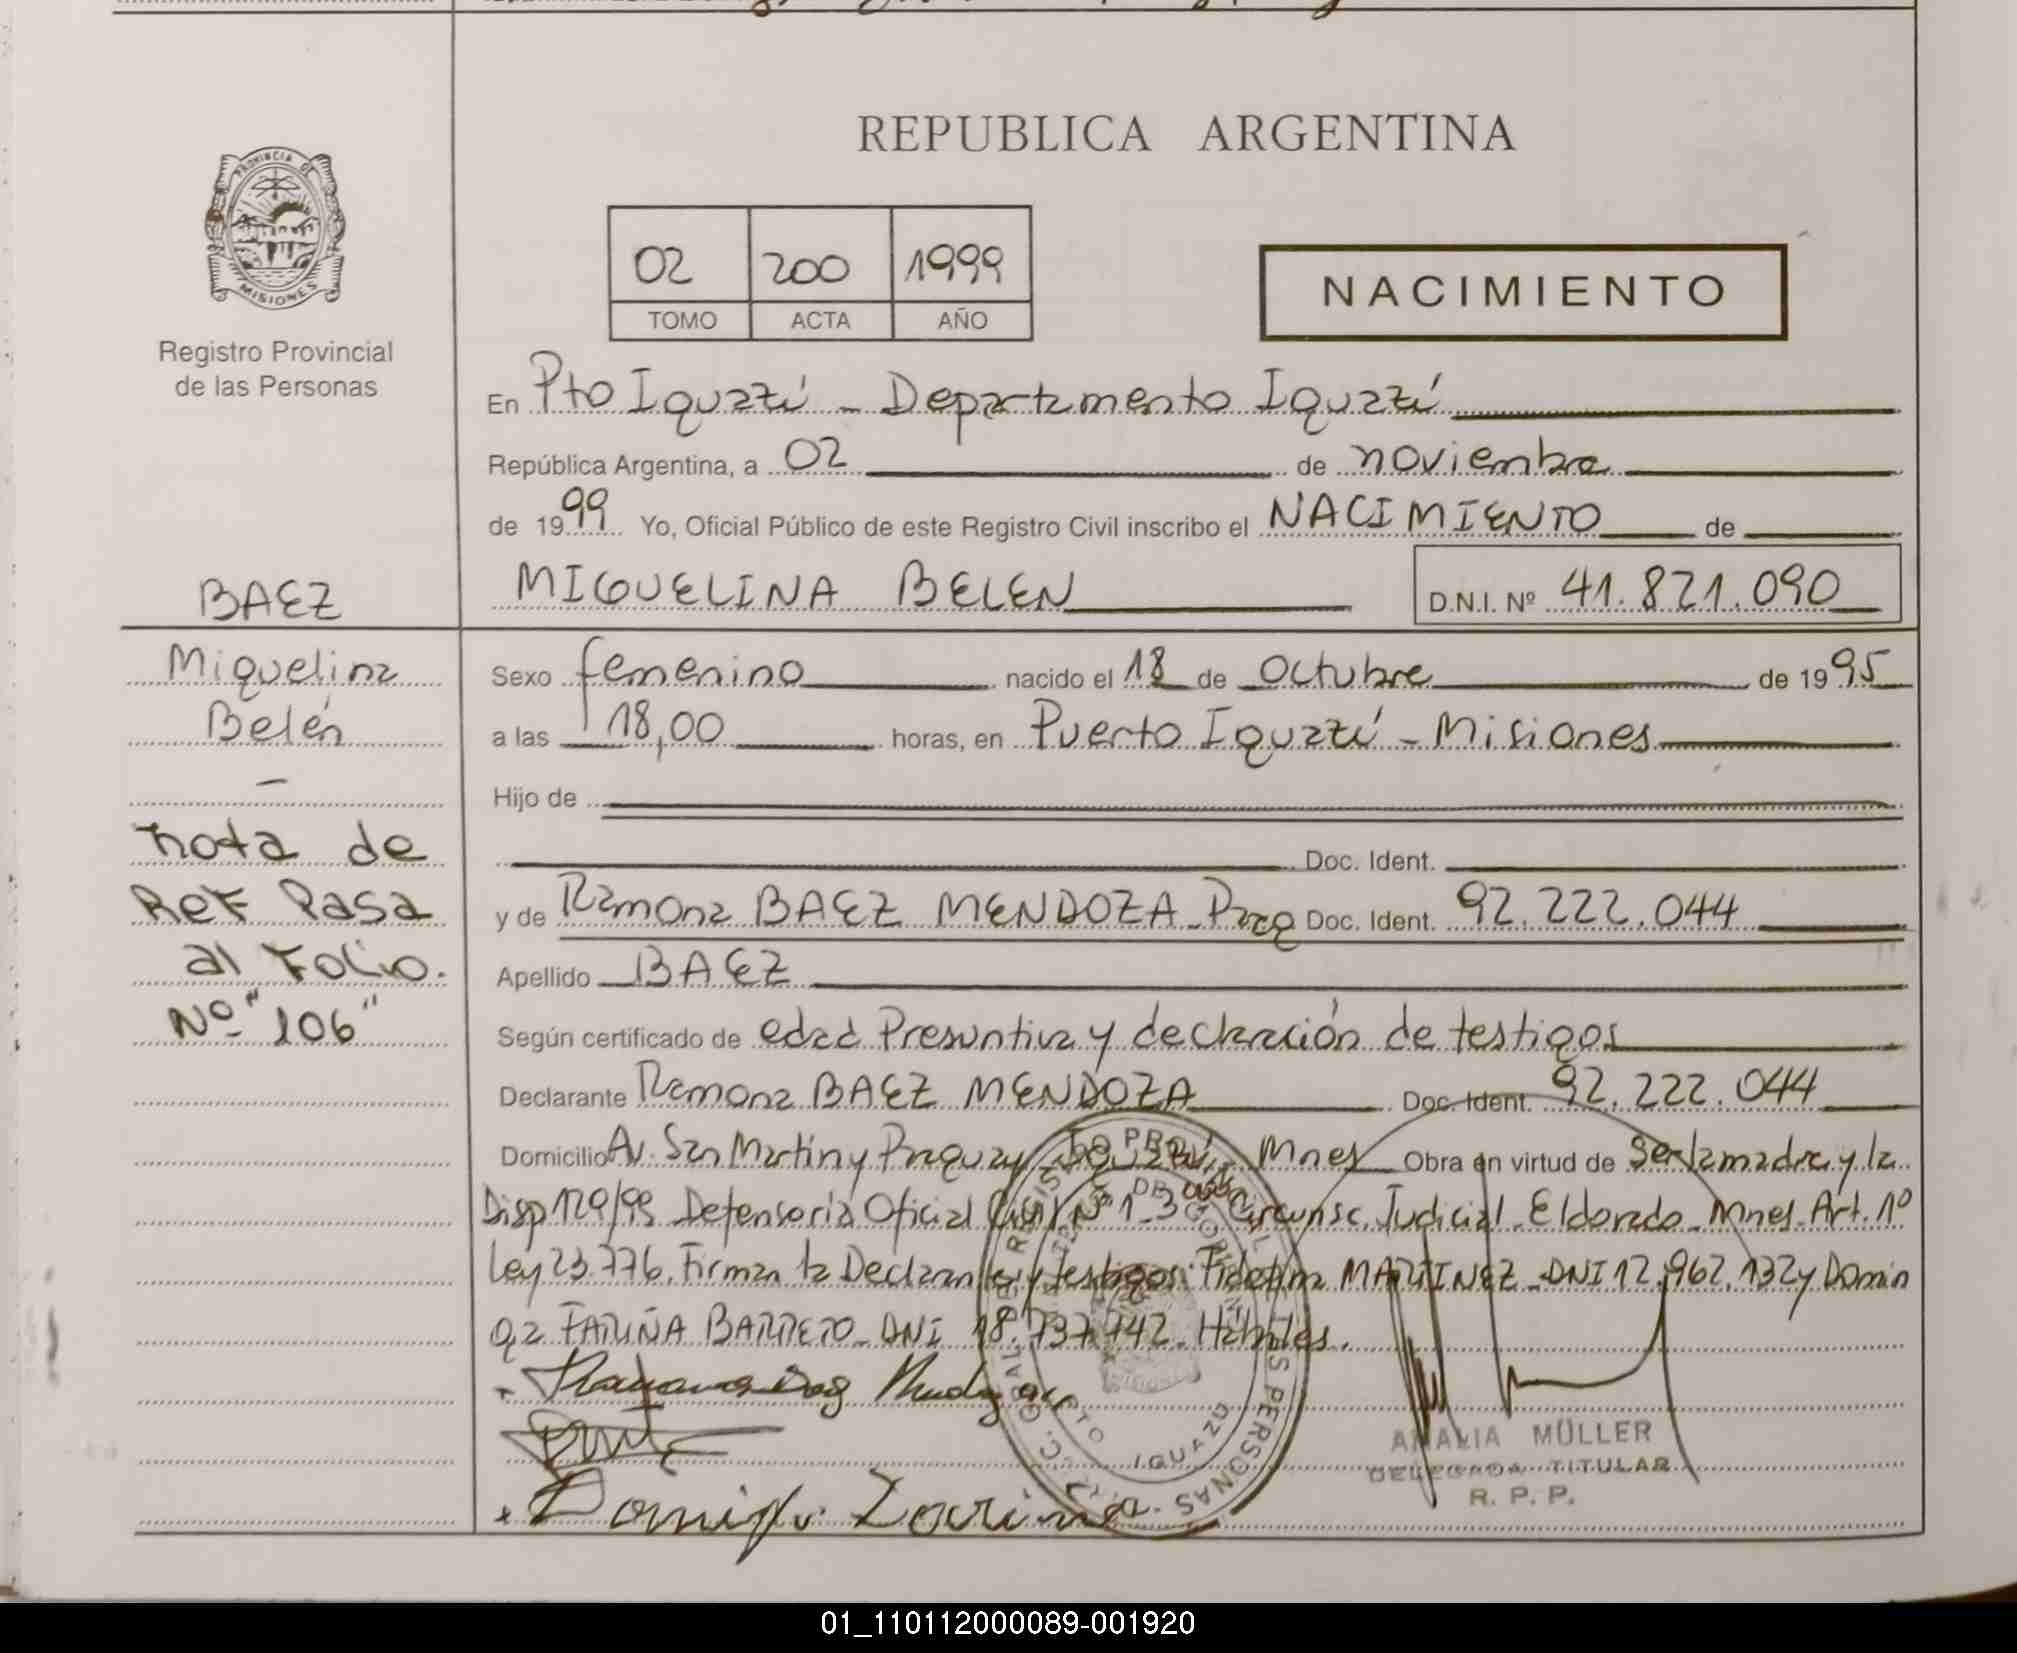 REPUBLICA ARGENTINA
PROVINCIA DE
MISIONES
Registro Provincial
de las Personas
02 200 1999
TOMO ACTA AÑO
NACIMIENTO
En Pto Iguazú - Departamento Iguazú
República Argentina, a 02 de noviembre
de 1999 Yo, Oficial Público de este Registro Civil inscribo el NACIMIENTO de
BAEZ
MIGUELINA BELEN D.N.I. Nº 41.821.090
Miguelina
Belén
-
nota de
Ref Pasa
al Folio.
Nº "106"
Sexo femenino nacido el 18 de Octubre de 1995
a las 18,00 horas, en Puerto Iguazú - Misiones
Hijo de
Doc. Ident.
y de Ramona BAEZ MENDOZA - Parag Doc. Ident. 92.222.044
Apellido BAEZ
Según certificado de edad Presuntiva y declaración de testigos
Declarante Ramona BAEZ MENDOZA Doc. Ident. 92.222.044
Domicilio Av. San Martin y Paraguay Iguazú Mnes Obra en virtud de Ser la madre y la
Disp 129/95 Defensoría Oficial Civil Nº 1 - 3 Circunsc. Judicial - Eldorado - Mnes - Art. 1º
Ley 23.776. Firman la Declarante y testigos: Fidelina MARTINEZ - DNI 12.962.132 y Domin
ga FARIÑA BARRETO - DNI 18.737.742 - Hábiles.
AMALIA MÜLLER
DELEGADA TITULAR
R. P. P.
IGUAZU
01_110112000089-001920